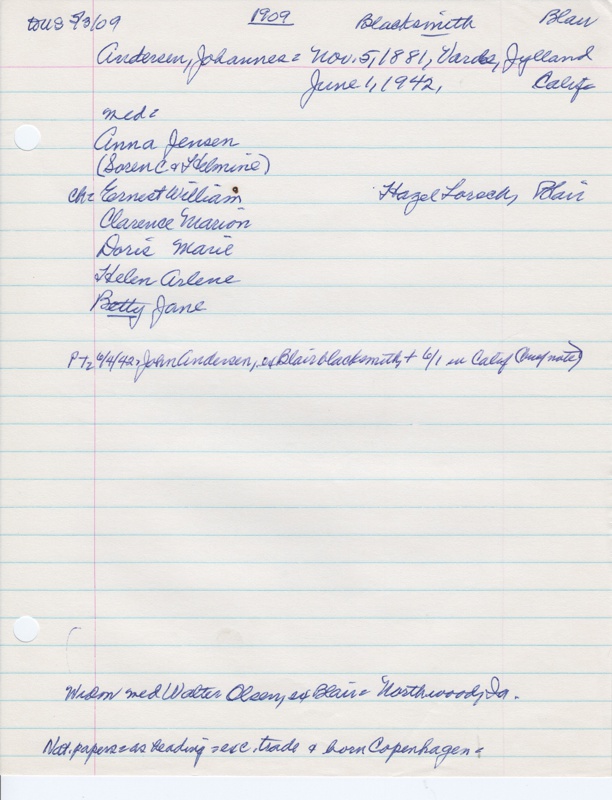 DUS 5/3/09 1909 Blacksmith Blair
Andersen, Johannes = Nov. 5, 1881, Varde, Jylland
June 1, 1942, Calif.
med=
Anna Jensen
(Soren C & Helmine)
ch= Ernest William Hazel Blair
Clarence Marion
Doris Marie
Helen Arlene
Betty Jane
PT= 6/4/42= John Andersen, ex Blair blacksmith, + 6/1 in Calif (brief note)
Widow med Walter Olsen, ex Blair= Northwood, Ia.
Nat. papers= as heading = exc. trade & born Copenhagen=